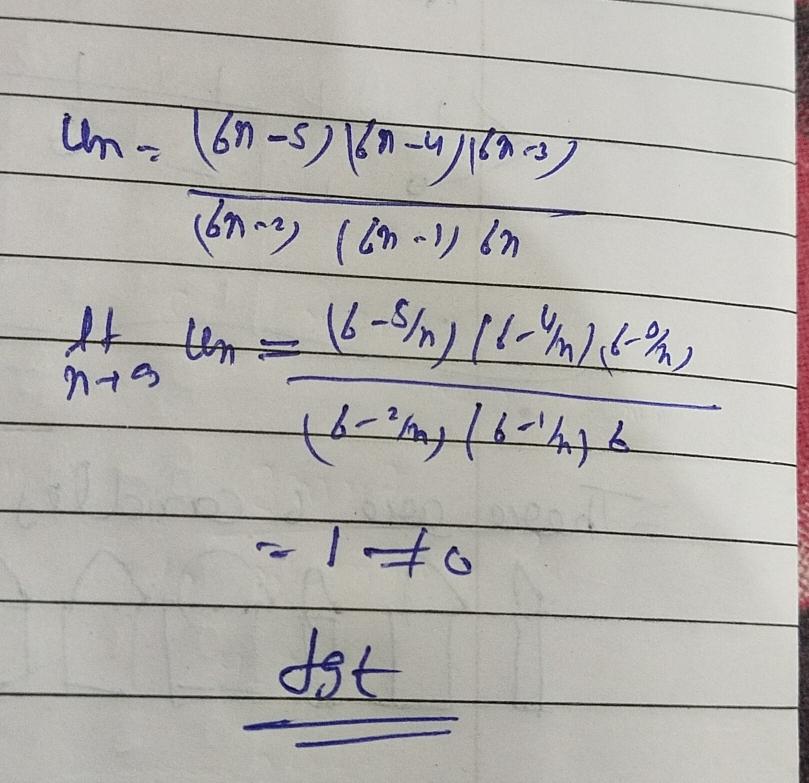 Un = (6n-5)(6n-4)(6n-3)
(6n-2) (6n-1) 6n
lt Un = (6-5/n) (6-4/n) (6-3/n)
n→∞
(6-2/n) (6-1/n) 6
= 1 ≠ 0
dgt